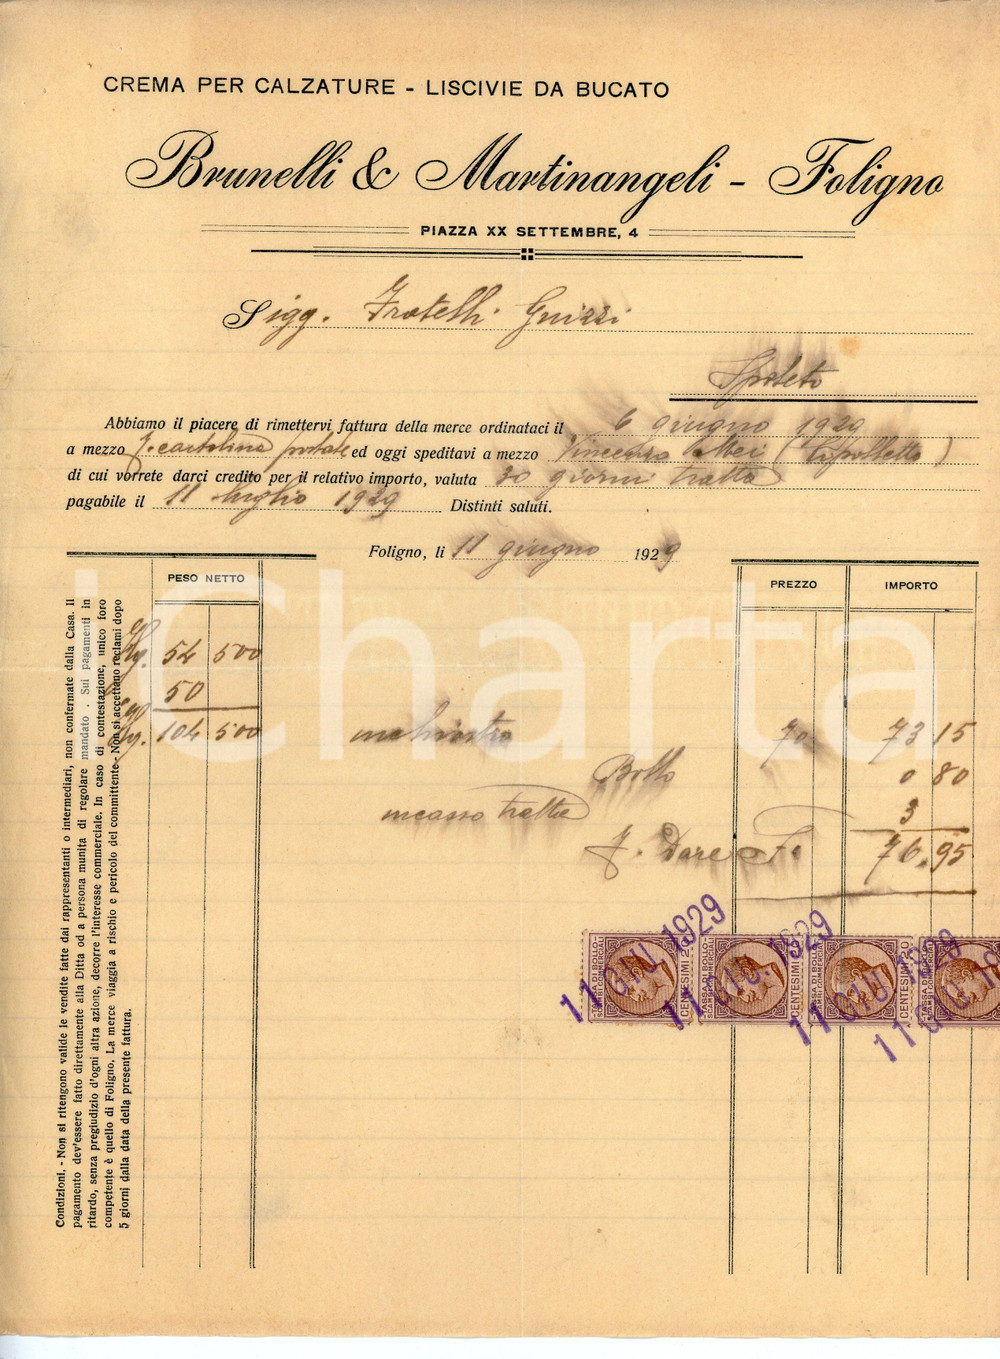 CREMA PER CALZATURE - LISCIVIE DA BUCATO
Brunelli & Martinangeli - Foligno
PIAZZA XX SETTEMBRE, 4
Sigg. Fratelli Guizzi
Spoleto
Abbiamo il piacere di rimettervi fattura della merce ordinataci il 6 giugno 1929
a mezzo cartolina postale ed oggi speditavi a mezzo Vincenzo Mei (Cipolletta)
di cui vorrete darci credito per il relativo importo, valuta 30 giorni tratta
pagabile il 11 luglio 1929 Distinti saluti.
Foligno, li 11 giugno 1929
PESO NETTO PREZZO IMPORTO
Kg. 54 500
50
Kg. 104 500 inchiostro 70 73 15
Bollo 0 80
incasso tratta 3
F. Dare F. 76.95
11 GIU. 1929 11 GIU. 1929 11 GIU 1929 11 GIU 19
TASSA DI BOLLO SCAMBI COMMERCIALI CENTESIMI 20
TASSA DI BOLLO SCAMBI COMMERCIALI CENTESIMI 20
TASSA DI BOLLO SCAMBI COMMERCIALI CENTESIMI 20
TASSA DI BOLLO SCAMBI COMMERCIALI
Condizioni. - Non si ritengono valide le vendite fatte dai rappresentanti o intermediari, non confermate dalla Casa. Il
pagamento dev'essere fatto direttamente alla Ditta od a persona munita di regolare mandato. Sui pagamenti in
ritardo, senza pregiudizio d'ogni altra azione, decorre l'interesse commerciale. In caso di contestazione, unico foro
competente è quello di Foligno, La merce viaggia a rischio e pericolo del committente - Non si accettano reclami dopo
5 giorni dalla data della presente fattura.
Charta